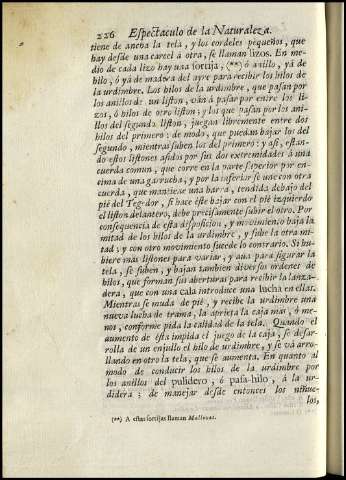 226 Espectaculo de la Naturaleza.
tiene de ancha la tela, y los cordeles pequeños, que
hay desde una carcel á otra, se llaman lizos. En me-
dio de cada lizo hay una sortija, (**) ó anillo, yá de
hilo, ó yá de madera del ayre para recibir los hilos de
la urdimbre. Los hilos de la urdimbre, que pasan por
los anillos de un liston, ván á pasar por entre los li-
zos, ó hilos de otro liston; y los que pasan por los ani-
llos del segundo liston, juegan libremente entre dos
hilos del primero: de modo, que puedan bajar los del
segundo, mientras suben los del primero: y asi, estan-
do estos listones asidos por sus dos extremidades á una
cuerda comun, que corre en la parte superior por en-
cima de una garrucha, y por la inferior se une con otra
cuerda, que mantiene una barra, tendida debajo del
pie del Tegedor, si hace éste bajar con el pie izquierdo
el liston delantero, debe precisamente subir el otro. Por
consequencia de esta disposicion, y movimiento baja la
mitad de los hilos de la urdimbre, y sube la otra mi-
tad, y con otro movimiento sucede lo contrario. Si hu-
biere mas listones para variar, y aun para figurar la
tela, se suben, y bajan tambien diversos ordenes de
hilos, que forman sus aberturas para recibir la lanza-
dera, que con una cala introduce una lucha en ellas.
Mientras se muda de pie, y recibe la urdimbre una
nueva lucha de trama, la aprieta la caja mas, ó me-
nos, conforme pide la calidad de la tela. Quando el
aumento de ésta impide el juego de la caja, se desar-
rolla de un enjullo el hilo de urdimbre, y se vá arro-
llando en otro la tela, que se aumenta. En quanto al
modo de conducir los hilos de la urdimbre por
los anillos del pulidero, ó pasa-hilo, á la ur-
didera; de manejar desde entonces los nihue-
los,
(**) A estas sortijas llaman Mallones.